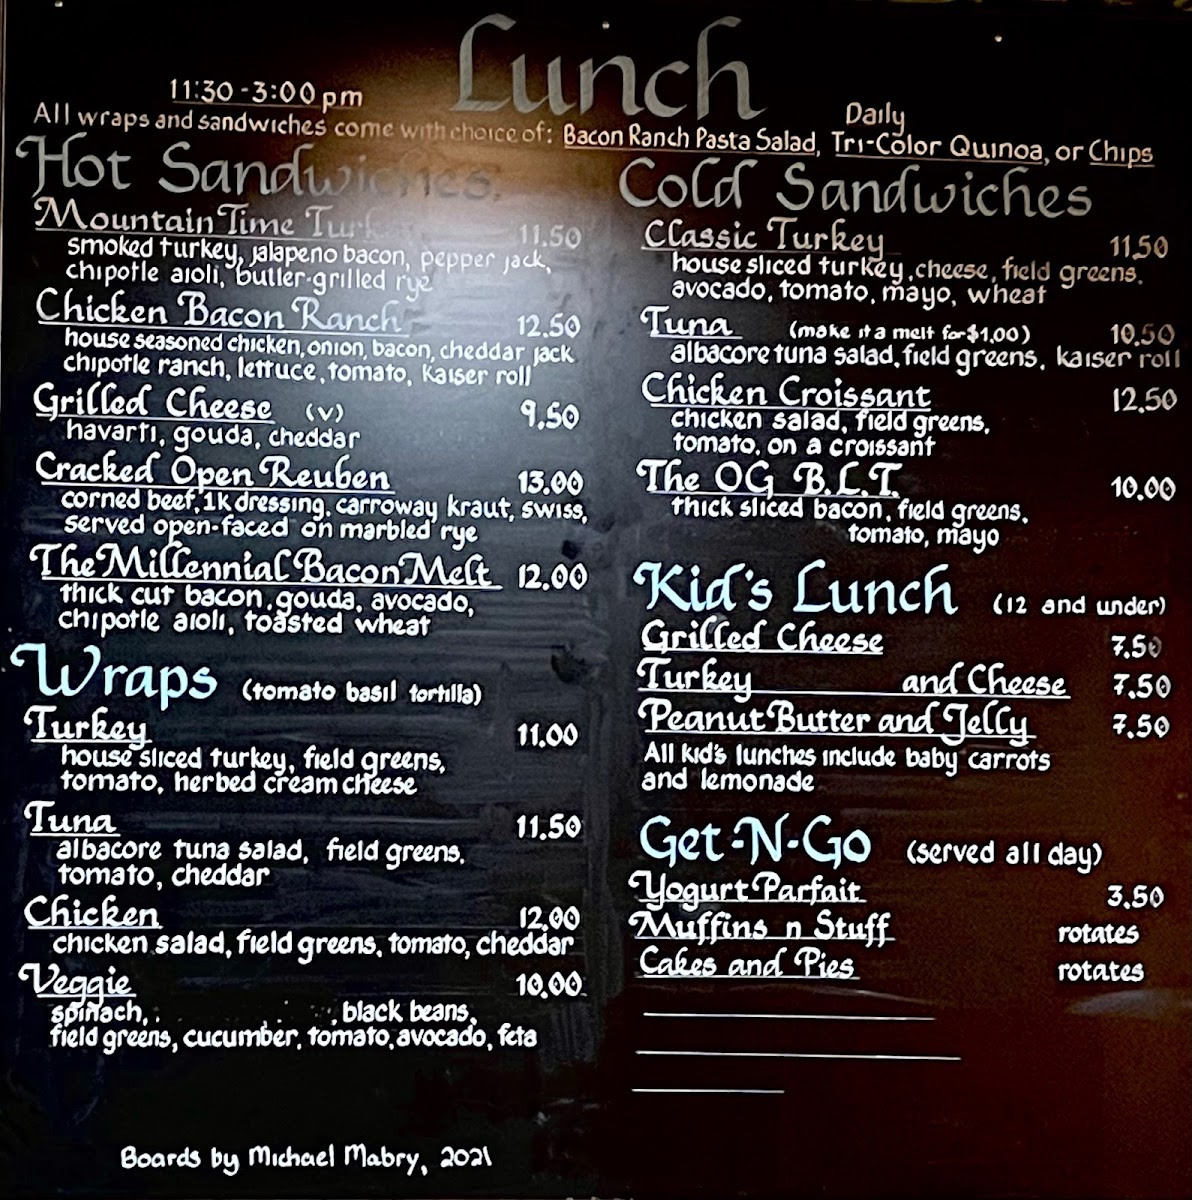 Lunch
11:30 - 3:00 pm
Daily
All wraps and sandwiches come with choice of: Bacon Ranch Pasta Salad, Tri-Color Quinoa, or Chips
Hot Sandwiches
Mountain Time Turkey 11.50
smoked turkey, jalapeno bacon, pepper jack,
chipotle aioli, butter-grilled rye
Chicken Bacon Ranch 12.50
house seasoned chicken, onion, bacon, cheddar jack
chipotle ranch, lettuce, tomato, kaiser roll
Grilled Cheese (v) 9.50
havarti, gouda, cheddar
Cracked Open Reuben 13.00
corned beef, 1K dressing, carroway kraut, swiss,
served open-faced on marbled rye
The Millennial Bacon Melt 12.00
thick cut bacon, gouda, avocado,
chipotle aioli, toasted wheat
Wraps (tomato basil tortilla)
Turkey 11.00
house sliced turkey, field greens,
tomato, herbed cream cheese
Tuna 11.50
albacore tuna salad, field greens,
tomato, cheddar
Chicken 12.00
chicken salad, field greens, tomato, cheddar
Veggie 10.00
spinach, black beans,
field greens, cucumber, tomato, avocado, feta
Boards by Michael Mabry, 2021
Cold Sandwiches
Classic Turkey 11.50
house sliced turkey, cheese, field greens,
avocado, tomato, mayo, wheat
Tuna (make it a melt for $1.00) 10.50
albacore tuna salad, field greens, kaiser roll
Chicken Croissant 12.50
chicken salad, field greens,
tomato, on a croissant
The OG B.L.T. 10.00
thick sliced bacon, field greens,
tomato, mayo
Kid's Lunch (12 and under)
Grilled Cheese 7.50
Turkey and Cheese 7.50
Peanut Butter and Jelly 7.50
All kid's lunches include baby carrots
and lemonade
Get-N-Go (served all day)
Yogurt Parfait 3.50
Muffins n Stuff rotates
Cakes and Pies rotates